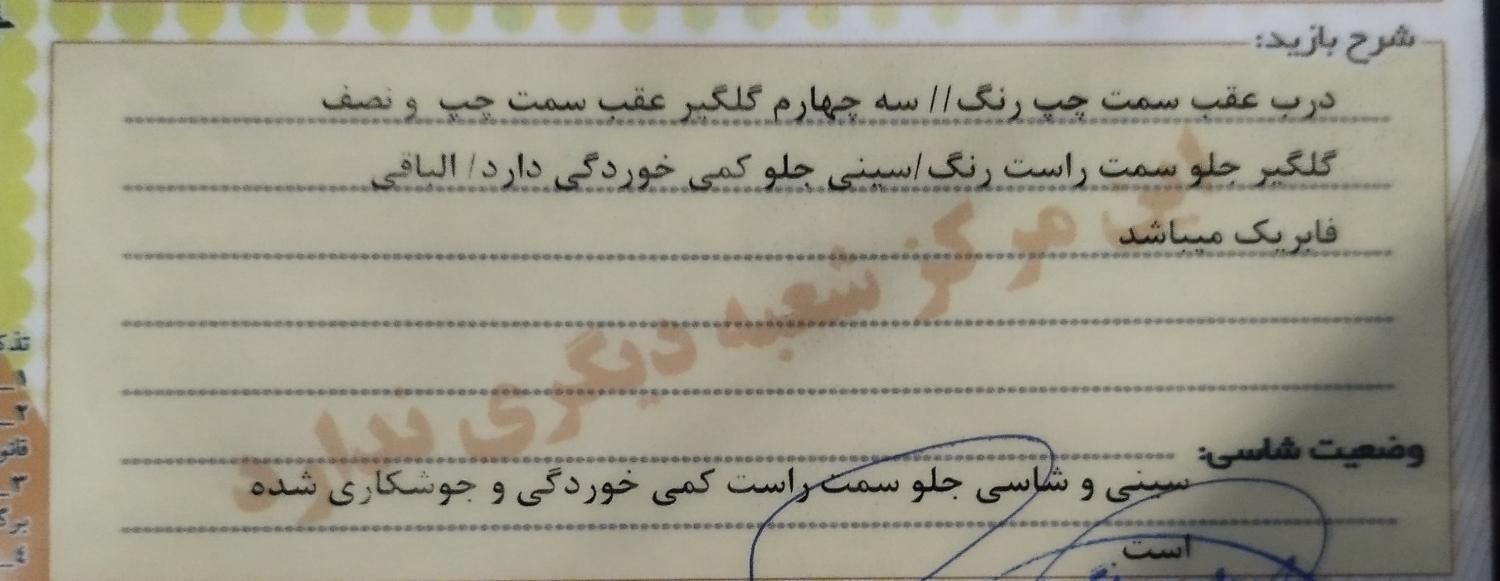 شرح بازید:
درب عقب سمت چپ رنگ// سه چهارم گلگیر عقب سمت چپ و نصف
گلگیر جلو سمت راست رنگ/سینی جلو کمی خوردگی دارد/ الباقی
فابریک میباشد
این مرکز شعبه دیگری ندارد
وضعیت شاسی:
سینی و شاسی جلو سمت راست کمی خوردگی و جوشکاری شده
است
تذک
۱_
۲_
قانو
۳_
برگ
۴_